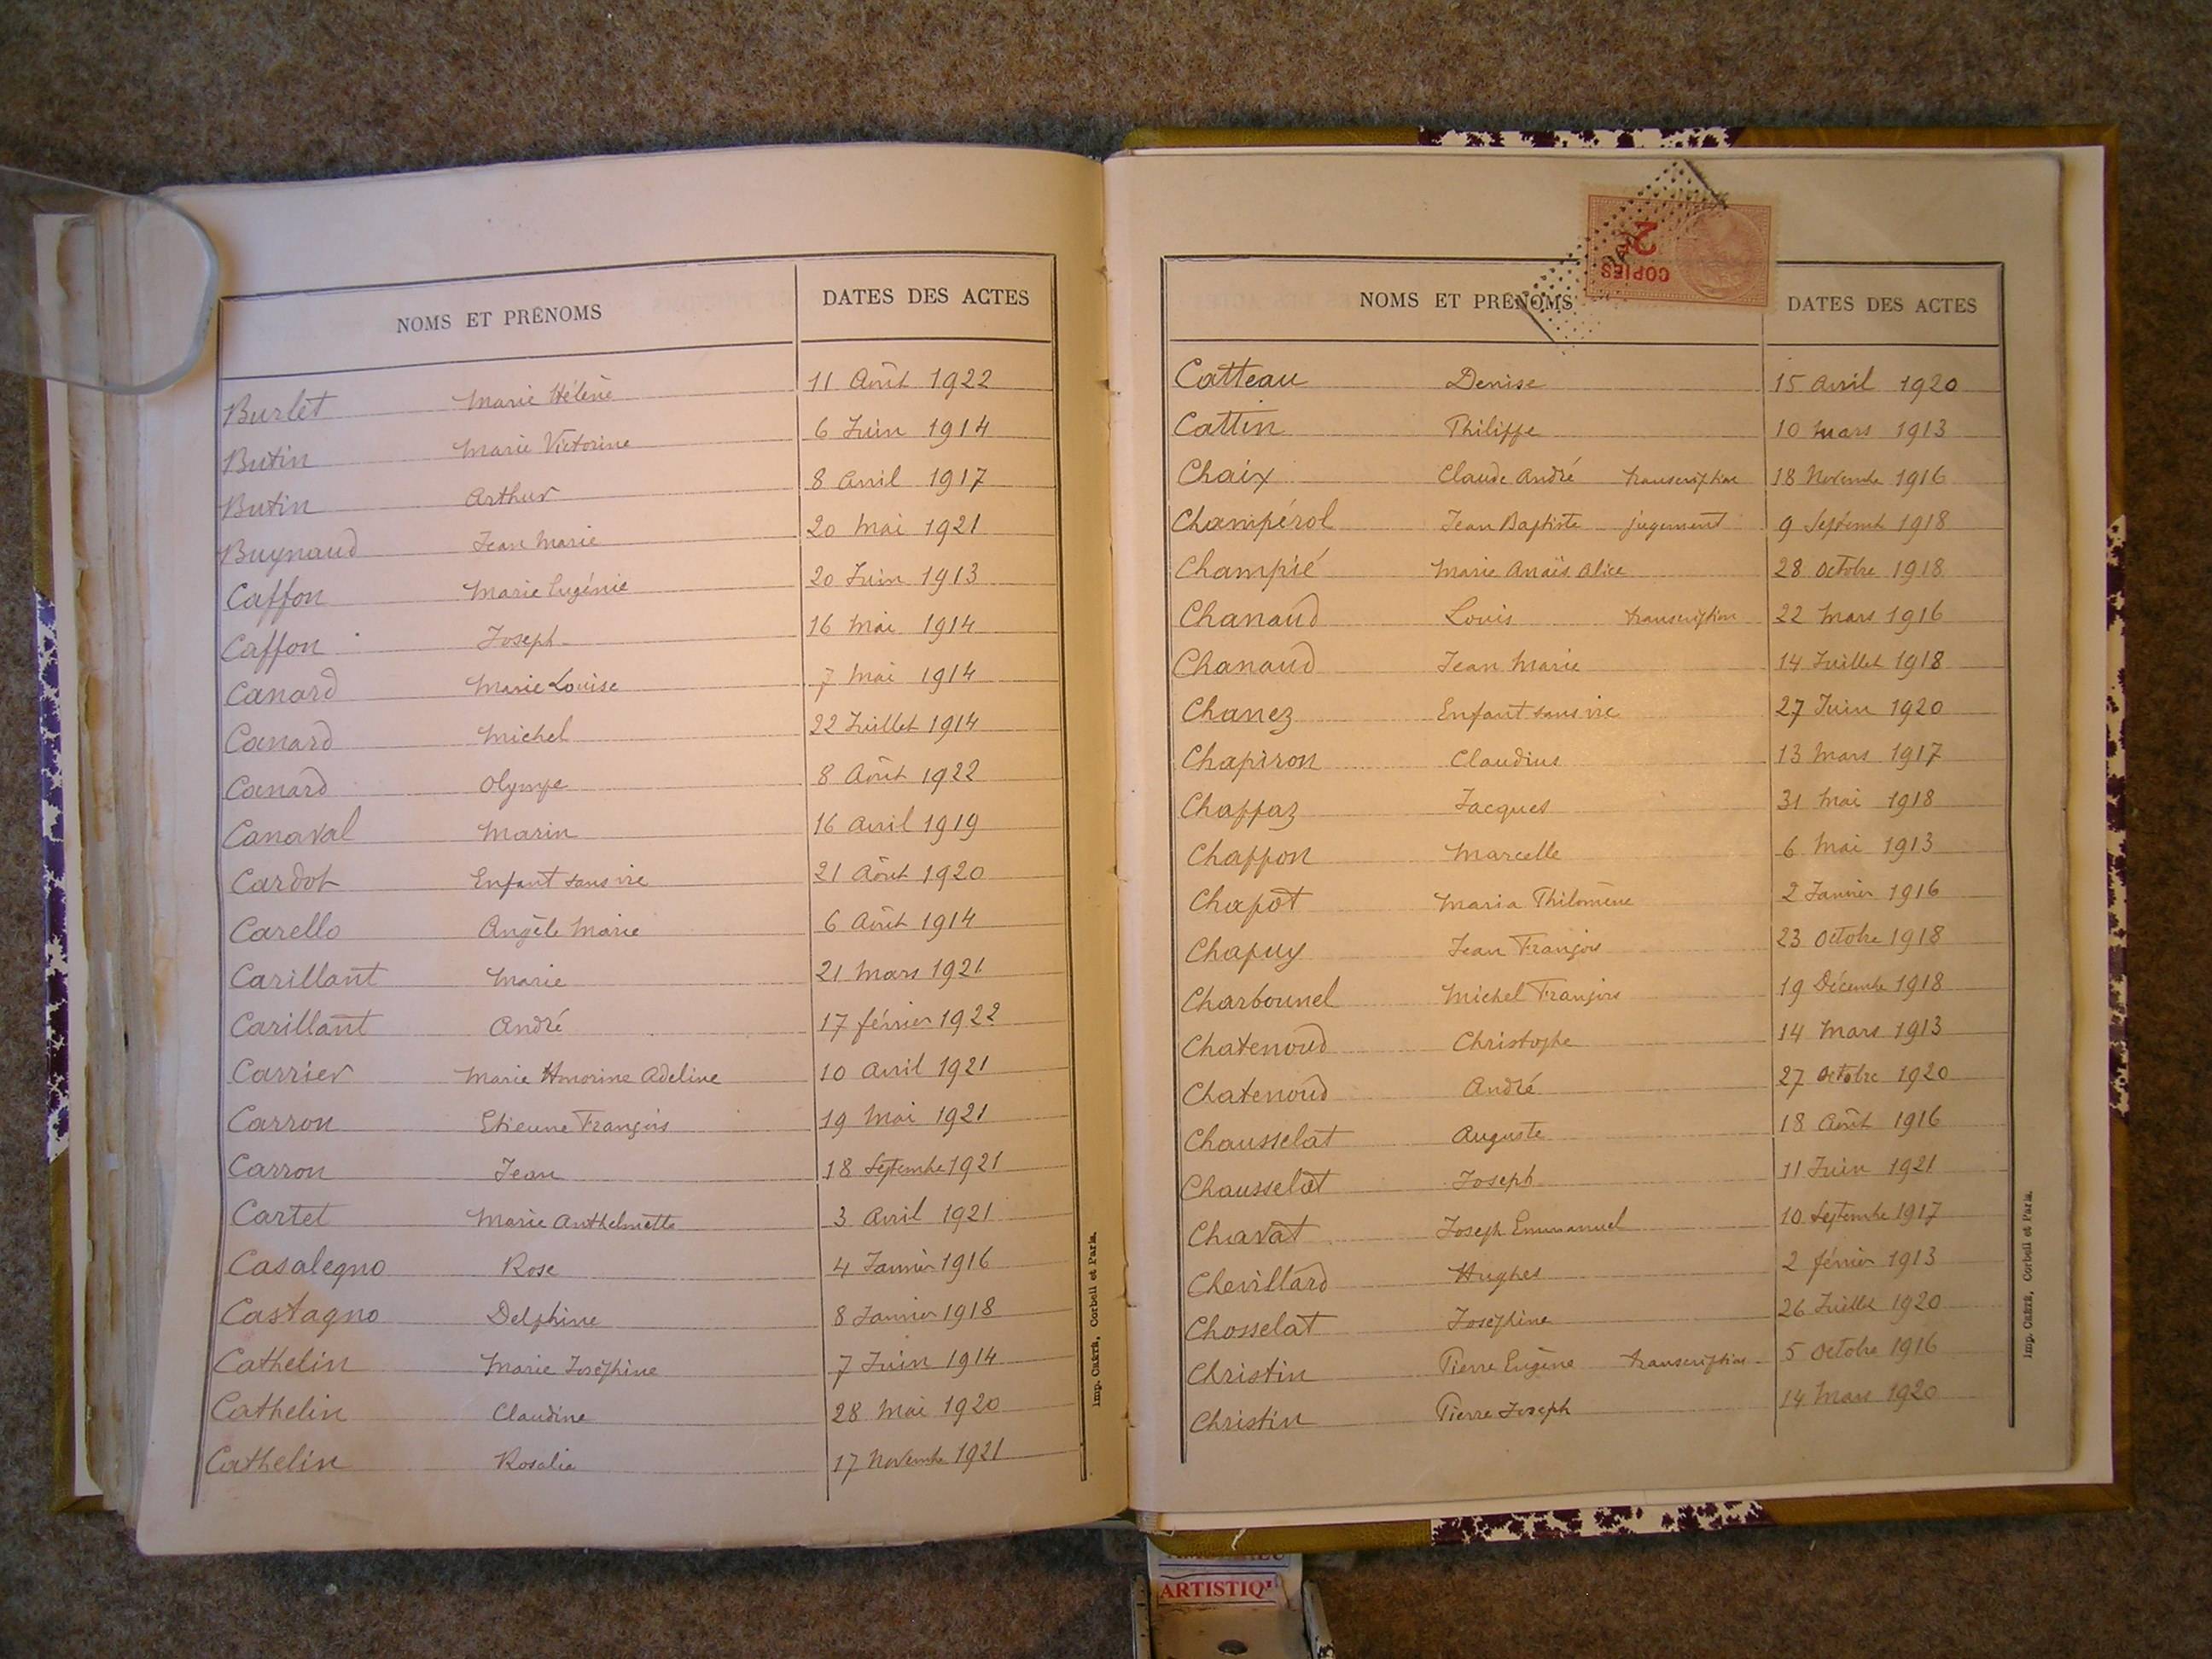 NOMS ET PRÉNOMS DATES DES ACTES
Burlet Marie Hélène 11 Août 1922
Butin Marie Victorine 6 Juin 1914
Butin Arthur 8 Avril 1917
Buynaud Jean Marie 20 Mai 1921
Caffon Marie Eugénie 20 Juin 1913
Caffon Joseph 16 Mai 1914
Canard Marie Louise 7 Mai 1914
Canard Michel 22 Juillet 1914
Canard Olympe 8 Août 1922
Canaval Marin 16 Avril 1919
Cardot Enfant sans vie 21 Août 1920
Carello Angèle Marie 6 Août 1914
Carillant Marie 21 Mars 1921
Carillant André 17 février 1922
Carrier Marie Honorine Adeline 10 Avril 1921
Carron Etienne François 19 Mai 1921
Carron Jean 18 Septembre 1921
Cartet Marie Anthelmette 3 Avril 1921
Casalegno Rose 4 Janvier 1916
Castagno Delphine 8 Janvier 1918
Cathelin Marie Joséphine 7 Juin 1914
Cathelin Claudine 28 Mai 1920
Cathelin Rosalie 17 Novembre 1921
Imp. CRÉTÉ, Corbeil et Paris.
2
COPIES
NOMS ET PRÉNOMS DATES DES ACTES
Catteau Denise 15 Avril 1920
Cattin Philippe 10 Mars 1913
Chaix Claude André transcription 18 Novembre 1916
Champérol Jean Baptiste jugement 9 Septemb 1918
Champié Marie Anaïs Alice 28 Octobre 1918
Chanaud Louis transcription 22 Mars 1916
Chanaud Jean Marie 14 Juillet 1918
Chanez Enfant sans vie 27 Juin 1920
Chapiron Claudius 13 Mars 1917
Chappaz Jacques 31 Mai 1918
Chappon Marcelle 6 Mai 1913
Chapot Maria Philomène 2 Janvier 1916
Chapuy Jean François 23 Octobre 1918
Charbonnel Michel François 19 Décembre 1918
Chatenoud Christophe 14 Mars 1913
Chatenoud André 27 Octobre 1920
Chausselat Auguste 18 Août 1916
Chausselat Joseph 11 Juin 1921
Chavat Joseph Emmanuel 10 Septembre 1917
Chevillard Hughes 2 février 1913
Chosselat Joséphine 26 Juillet 1920
Christin Pierre Eugène transcription 5 Octobre 1916
Christin Pierre Joseph 14 Mars 1920
Imp. CRÉTÉ, Corbeil et Paris.
ARTISTIQ